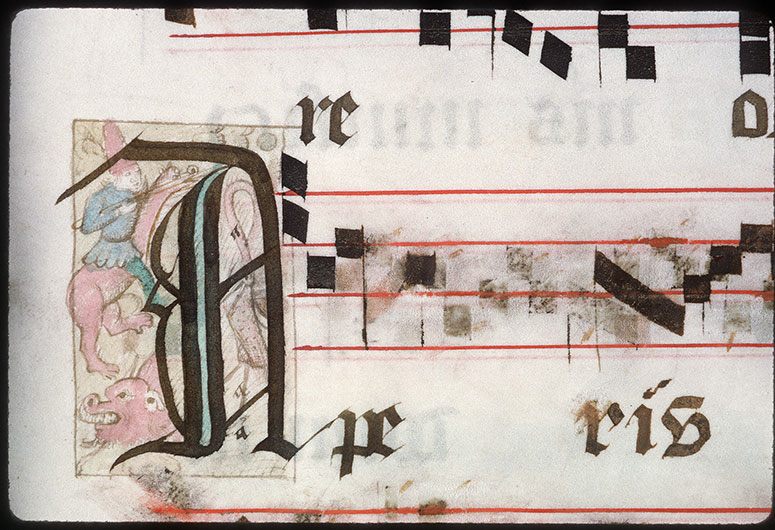 re o
Ape ris